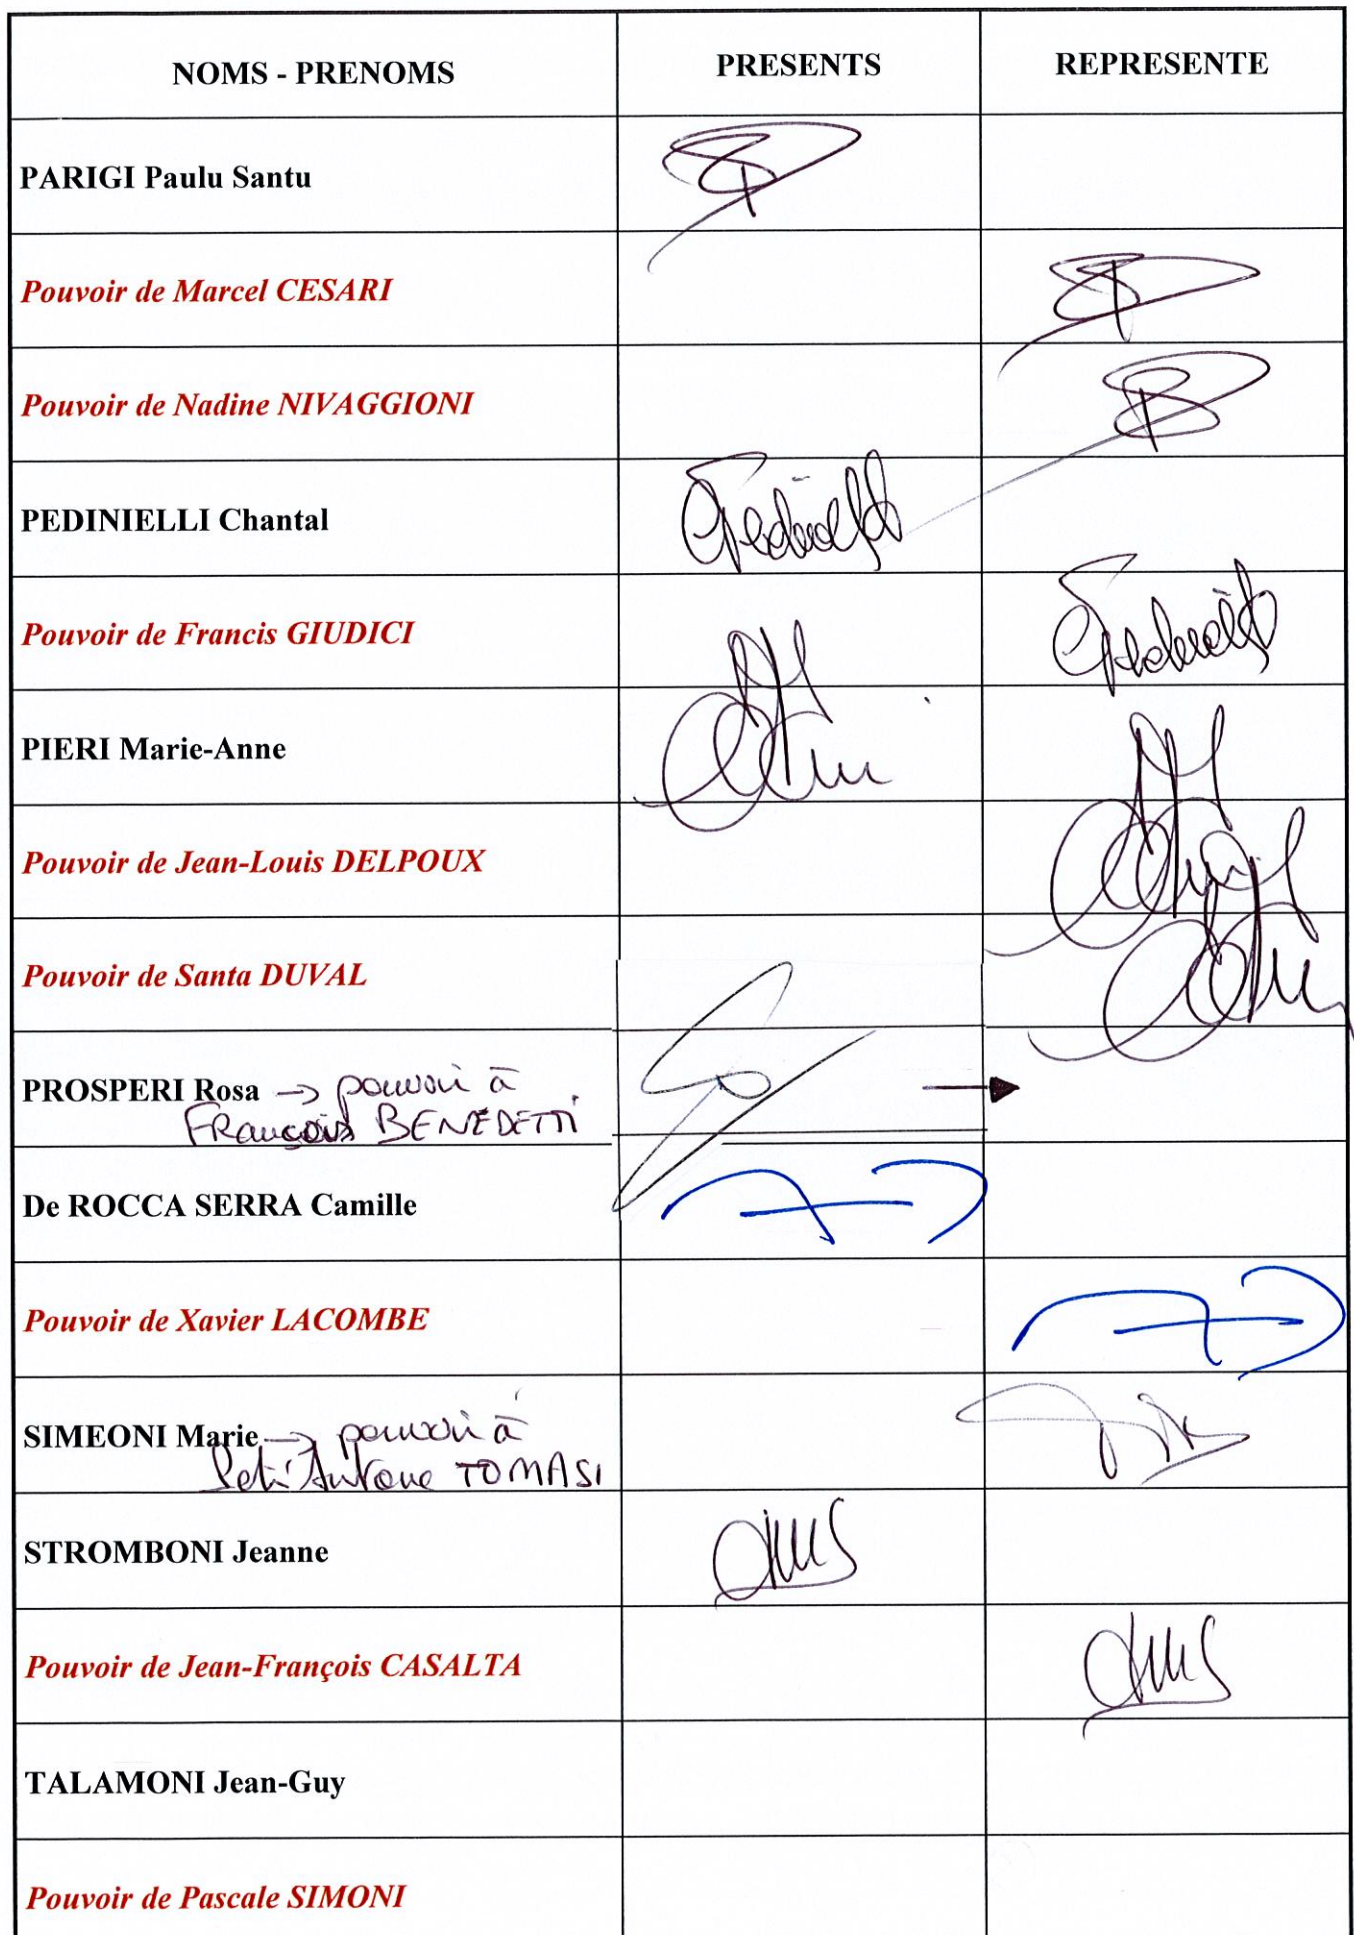 NOMS - PRENOMS PRESENTS REPRESENTE
PARIGI Paulu Santu
Pouvoir de Marcel CESARI
Pouvoir de Nadine NIVAGGIONI
PEDINIELLI Chantal
Pouvoir de Francis GIUDICI
PIERI Marie-Anne
Pouvoir de Jean-Louis DELPOUX
Pouvoir de Santa DUVAL
PROSPERI Rosa → pouvoir à
François BENEDETTI
De ROCCA SERRA Camille
Pouvoir de Xavier LACOMBE
SIMEONI Marie → pouvoir à
Petr'Antone TOMASI
STROMBONI Jeanne
Pouvoir de Jean-François CASALTA
TALAMONI Jean-Guy
Pouvoir de Pascale SIMONI